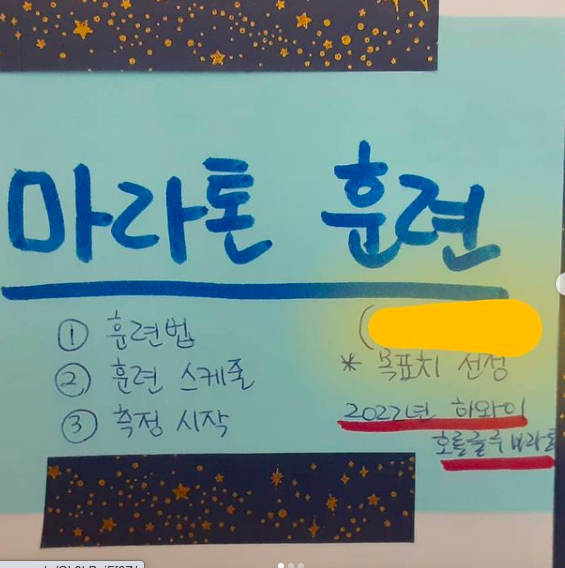 마라톤 훈련
① 훈련법
② 훈련 스케줄
③ 측정 시작
(
* 목표치 선정
2022년 하와이
호놀룰루 마라톤